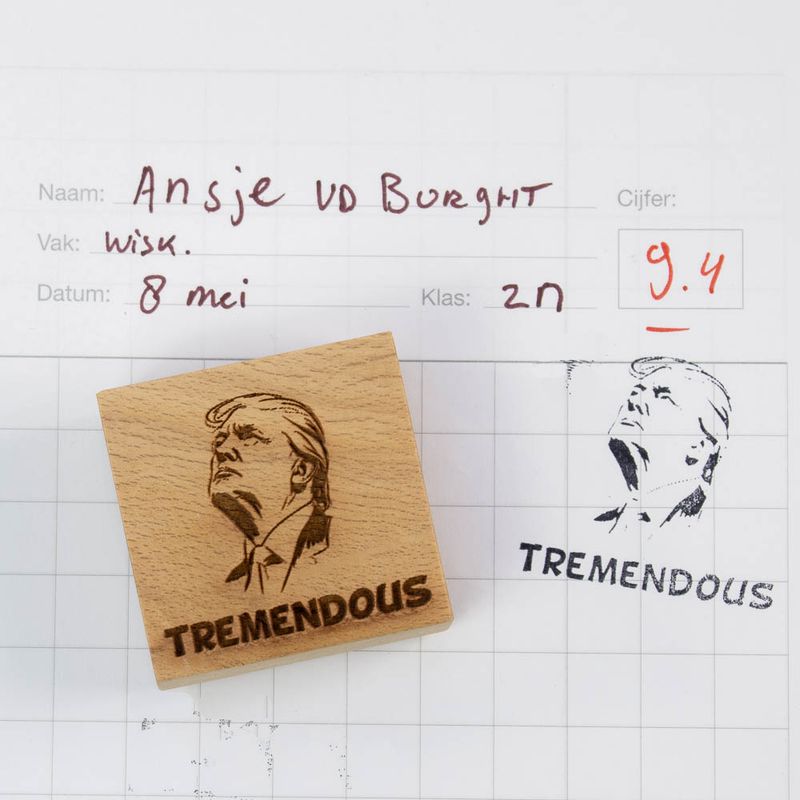 Naam: Ansje VD Burght
Cijfer:
Vak: Wisk.
9.4
Datum: 8 mei
Klas: 2n
TREMENDOUS
TREMENDOUS